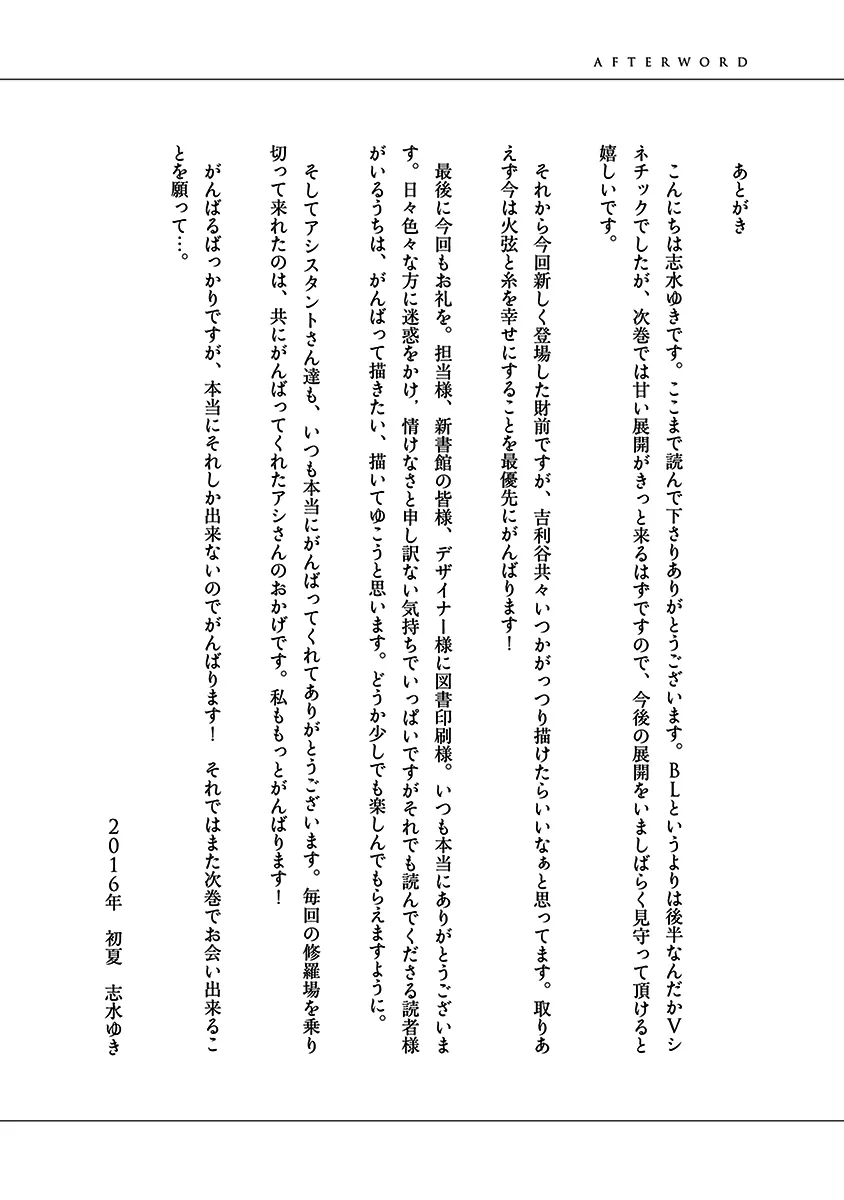 AFTERWORD
あとがき
こんにちは志水ゆきです。ここまで読んで下さりありがとうございます。BLというよりは後半なんだかVシ
ネチックでしたが、次巻では甘い展開がきっと来るはずですので、今後の展開をいましばらく見守って頂けると
嬉しいです。
それから今回新しく登場した財前ですが、吉利谷共々いつかがっつり描けたらいいなぁと思ってます。取りあ
えず今は火弦と糸を幸せにすることを最優先にがんばります！
最後に今回もお礼を。担当様、新書館の皆様、デザイナー様に図書印刷様。いつも本当にありがとうございま
す。日々色々な方に迷惑をかけ，情けなさと申し訳ない気持ちでいっぱいですがそれでも読んでくださる読者様
がいるうちは、がんばって描きたい、描いてゆこうと思います。どうか少しでも楽しんでもらえますように。
そしてアシスタントさん達も、いつも本当にがんばってくれてありがとうございます。毎回の修羅場を乗り
切って来れたのは、共にがんばってくれたアシさんのおかげです。私ももっとがんばります！
がんばるばっかりですが、本当にそれしか出来ないのでがんばります！　それではまた次巻でお会い出来るこ
とを願って…。
2016年　初夏　志水ゆき